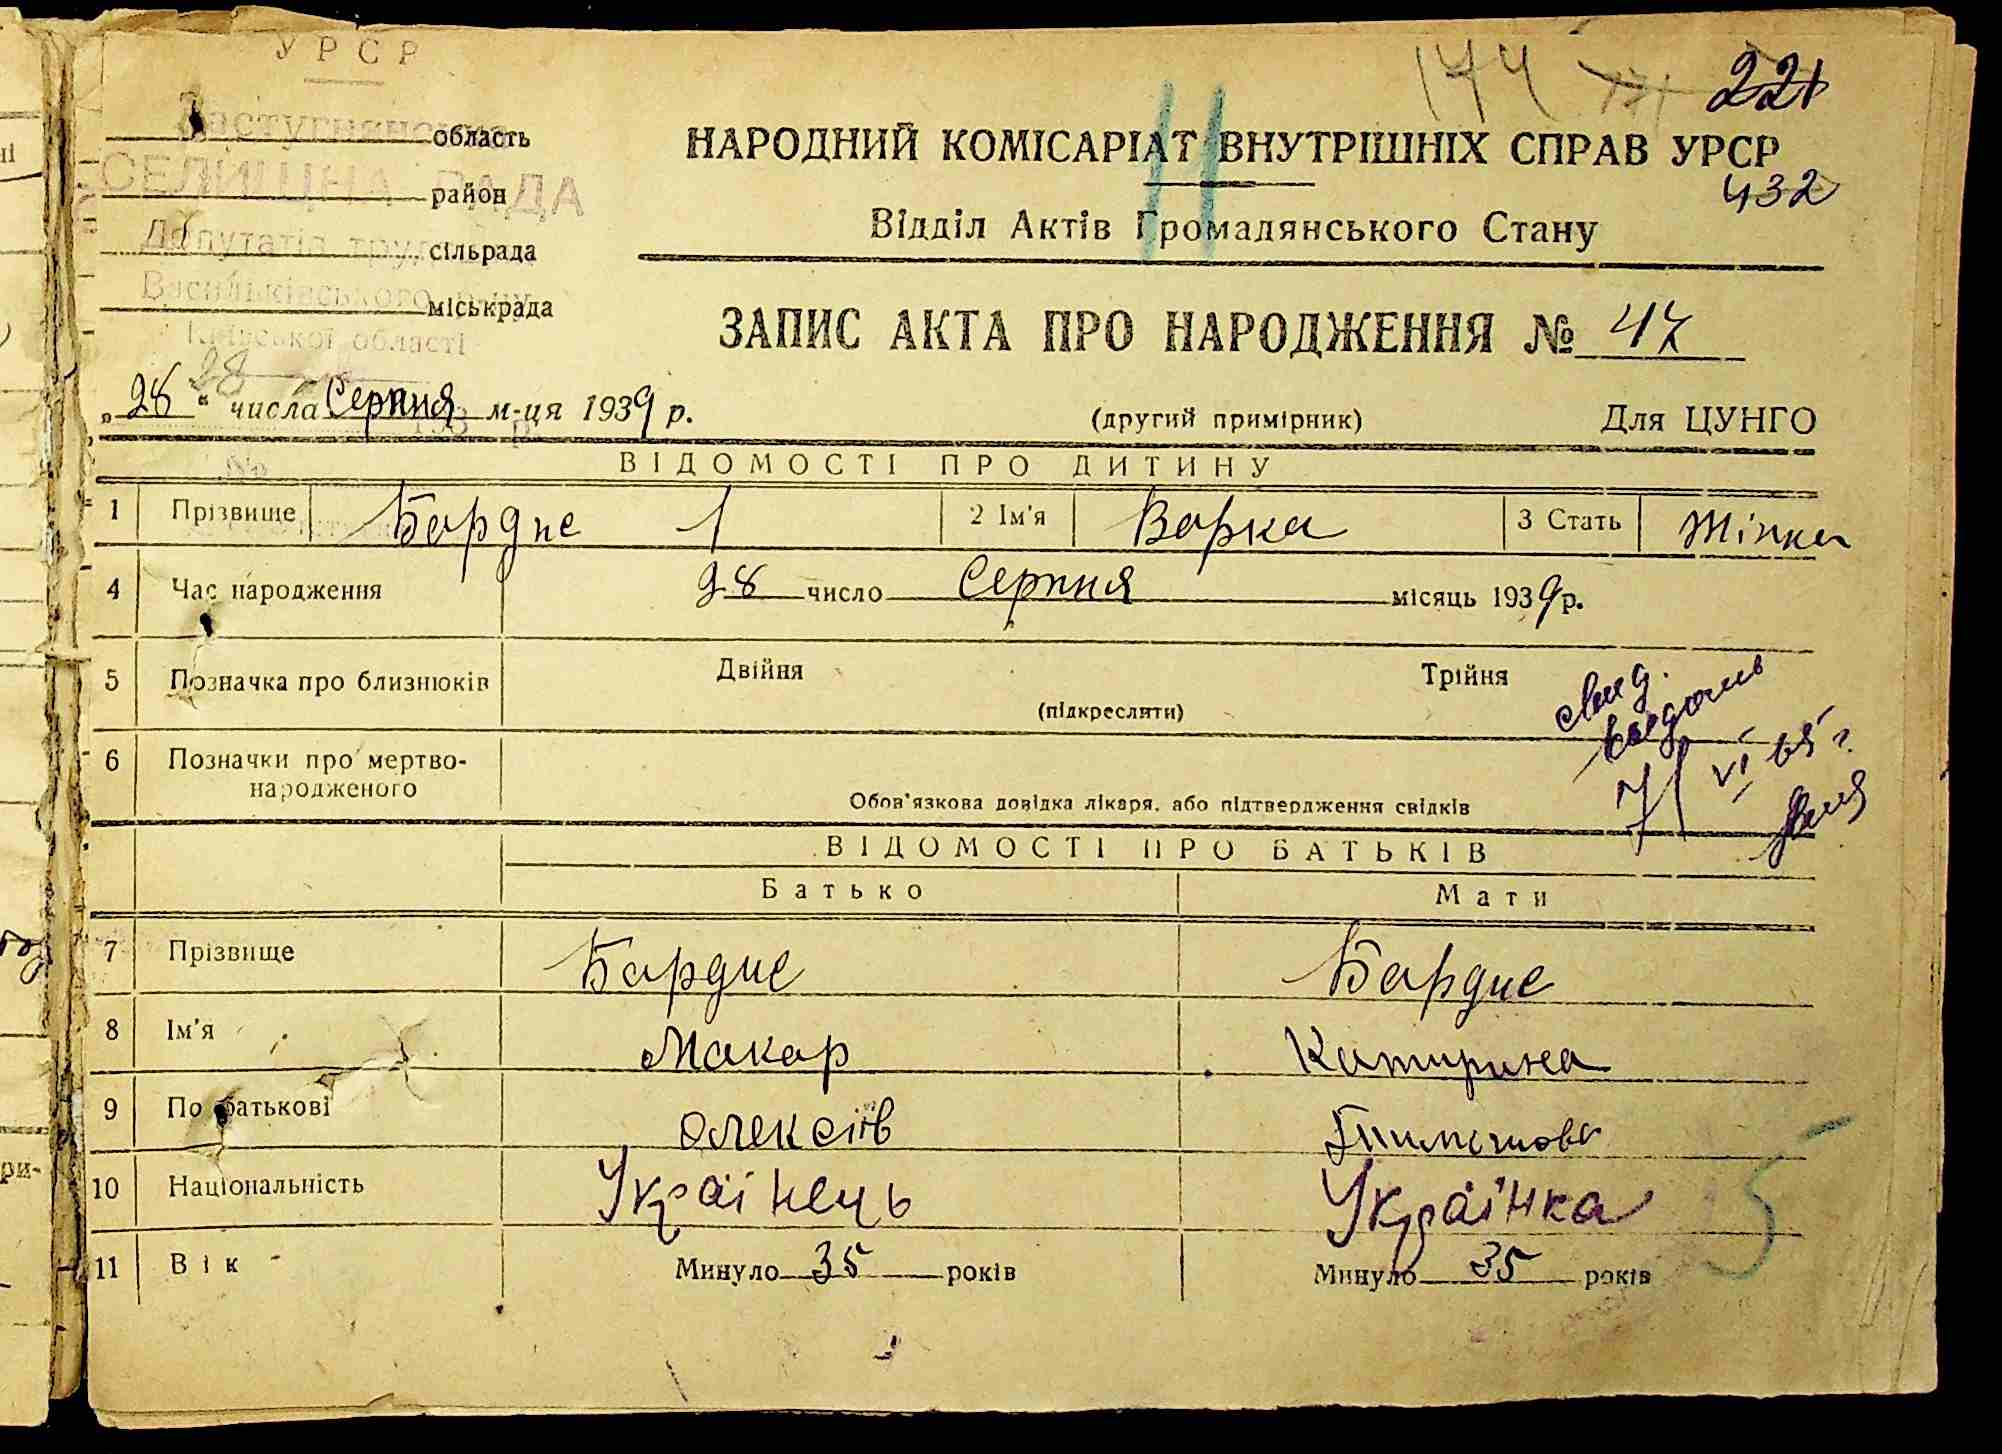 УРСР
область
СЕЛИЩНА РАДА
район
Депутатів
сільрада
Васильківського р-ну
міськрада
Київської області
28
"28" числа Серпня м-ця 1939 р.
144 171 221
НАРОДНИЙ КОМІСАРІАТ ВНУТРІШНІХ СПРАВ УРСР
432
Відділ Актів Громадянського Стану
ЗАПИС АКТА ПРО НАРОДЖЕННЯ № 47
(другий примірник) Для ЦУНГО
ВІДОМОСТІ ПРО ДИТИНУ
1 Прізвище Бардис 1 2 Ім'я Варка 3 Стать Жінка
4 Час народження 28 число Серпня місяць 1939 р.
5 Позначка про близнюків Двійня Трійня
(підкреслити)
6 Позначки про мертво-
народженого
Обов'язкова довідка лікаря, або підтвердження свідків
7/VI 65 г.
ВІДОМОСТІ ПРО БАТЬКІВ
Батько Мати
7 Прізвище Бардис Бардис
8 Ім'я Макар Катирина
9 По батькові Олексіїв
10 Національність Українець Українка
11 Вік Минуло 35 років Минуло 35 років